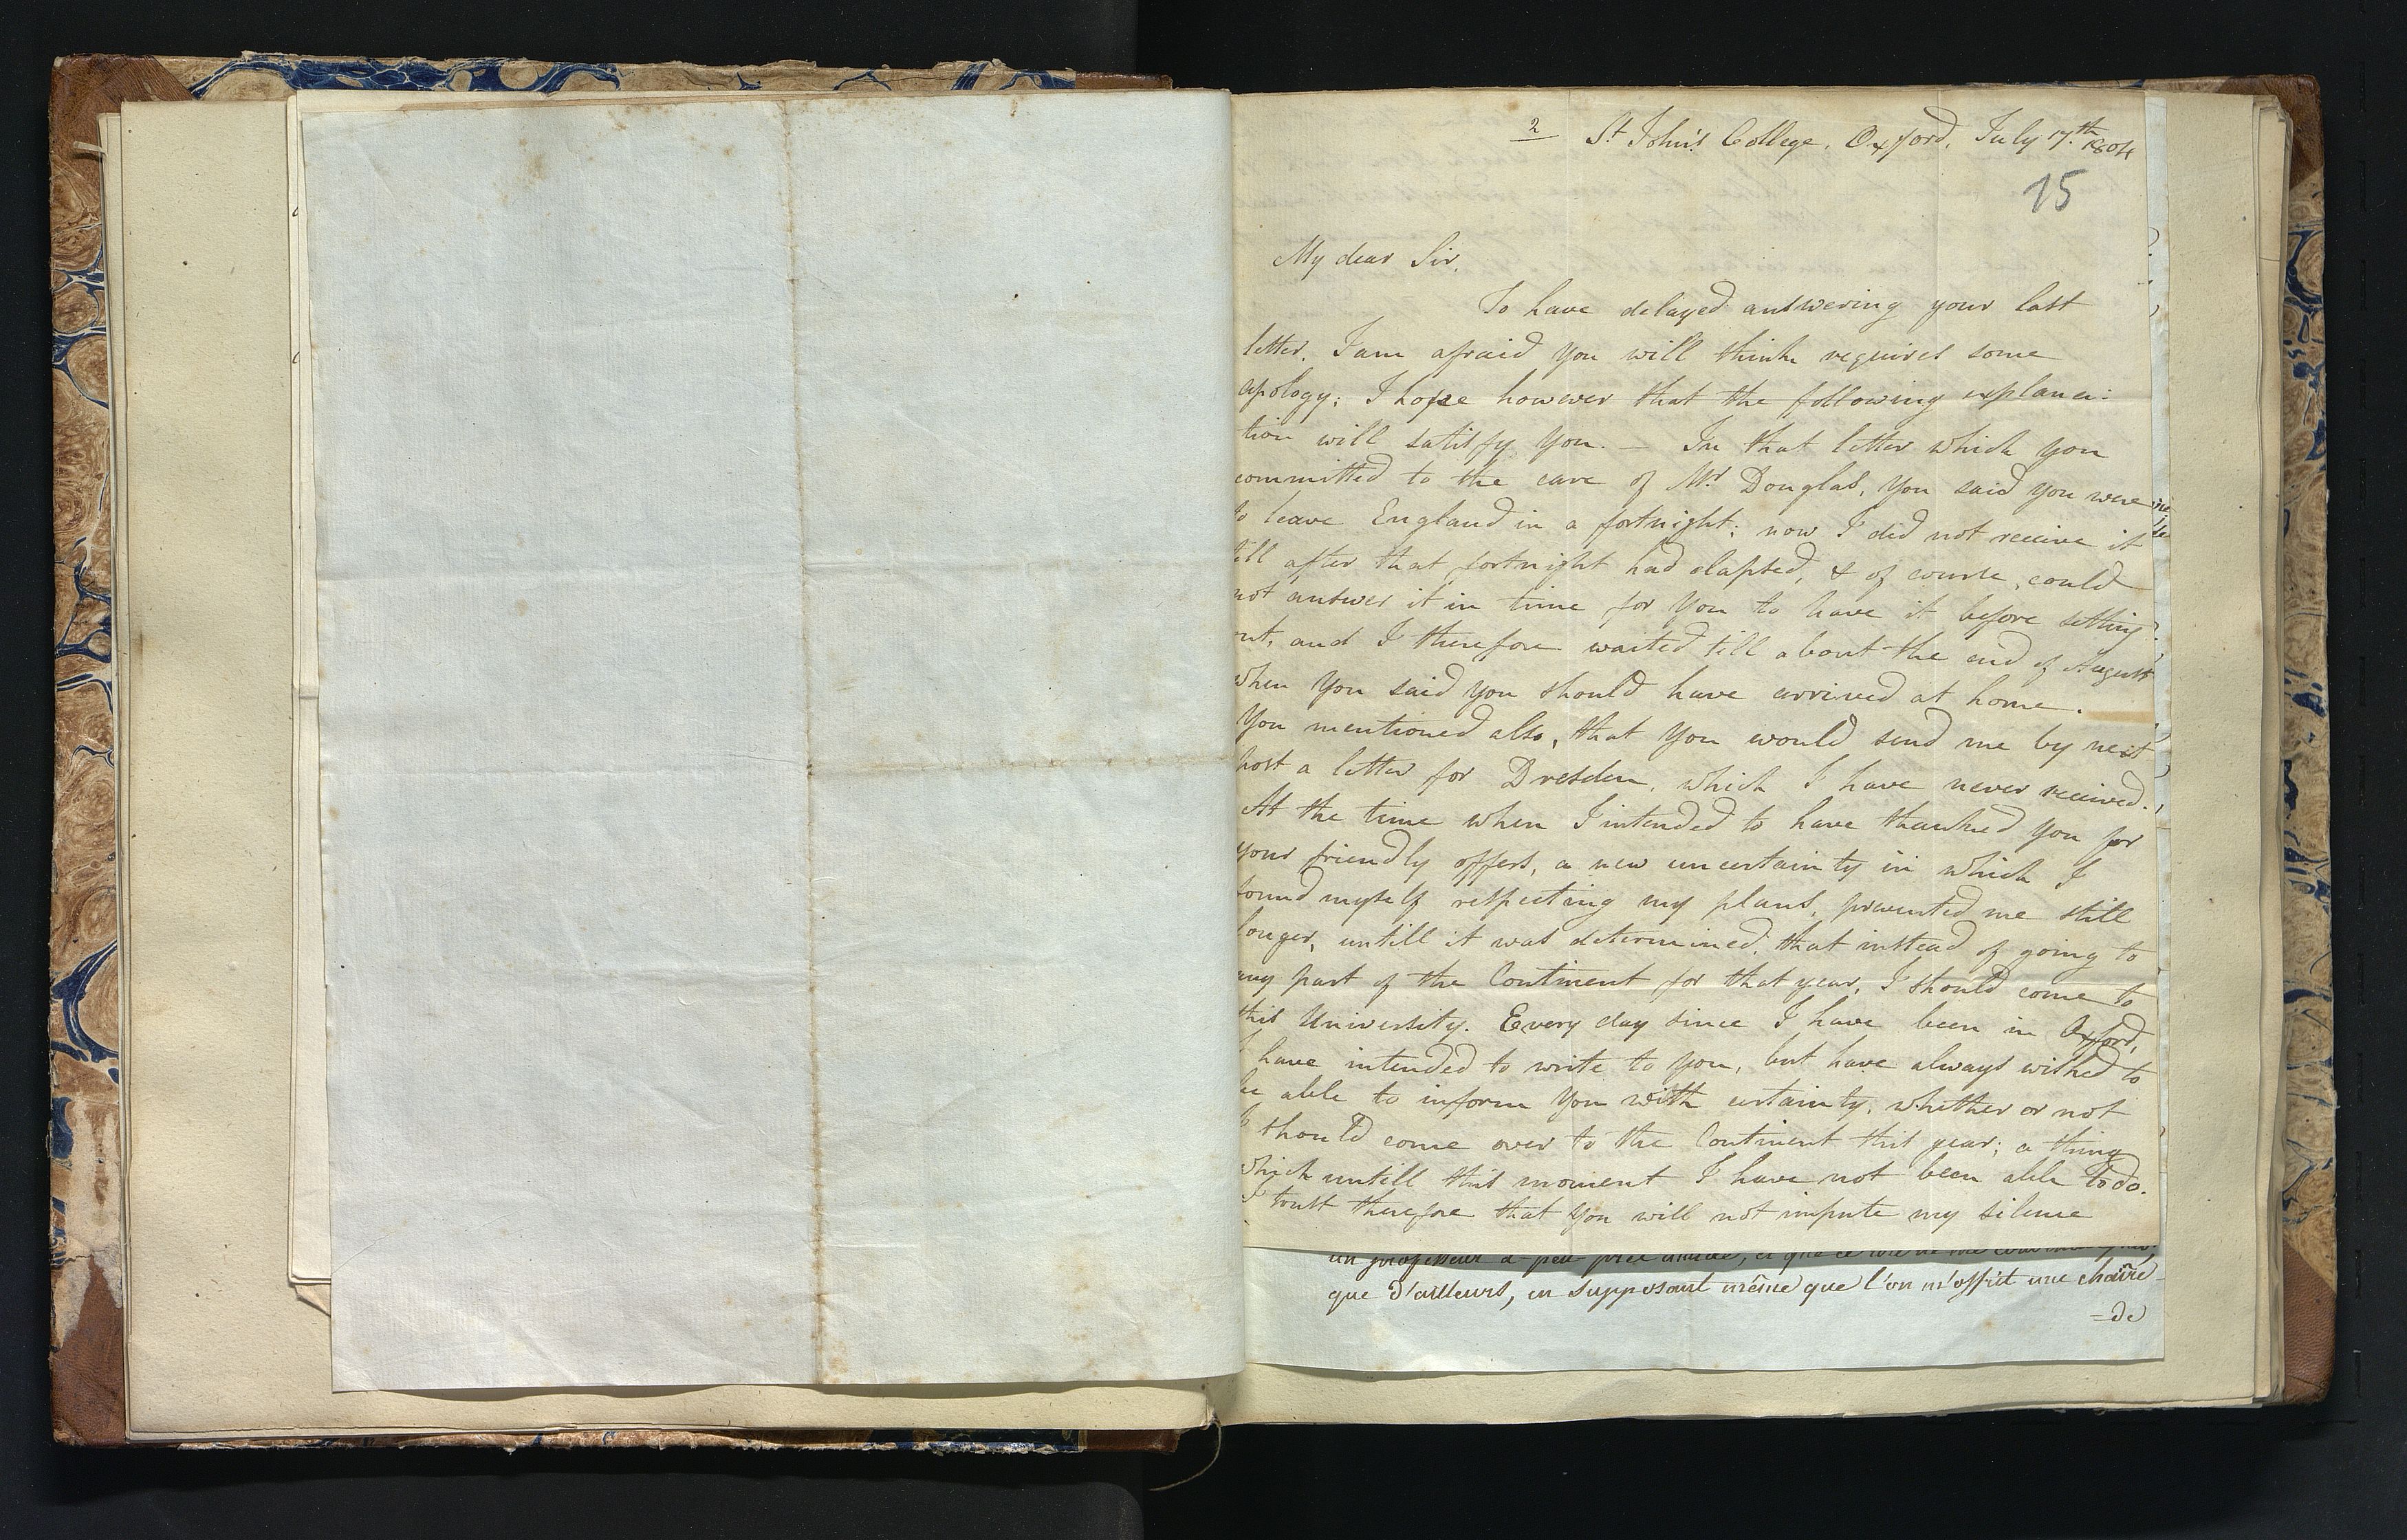 2 St John's College, Oxford, July 17th 1804
15
My dear Sir,
To have delayed answering your last
letter, I am afraid you will think requires some
apology; I hope however that the following explana:
tion will satisfy you. — In that letter which you
committed to the care of Mr Douglas, you said you were
to leave England in a fortnight; now I did not receive it
till after that fortnight had elapsed, & of course, could
not answer it in time for you to have it before setting
out, and I therefore waited till about the end of August
when you said you should have arrived at home.
You mentioned also, that you would send me by next
post a letter for Dresden, which I have never received.
At the time when I intended to have thanked you for
your friendly offers, a new uncertainty in which I
found myself respecting my plans, prevented me still
longer, untill it was determined, that instead of going to
any part of the Continent for that year, I should come to
this University. Every day since I have been in Oxford,
I have intended to write to you, but have always wished to
be able to inform you with certainty, whether or not
I should come over to the Continent this year; a thing
which untill this moment I have not been able to do.
I trust therefore that you will not impute my silence
un professeur à-peu-près
que d'ailleurs, en supposant même que l'on m'offrît une chaire
=de